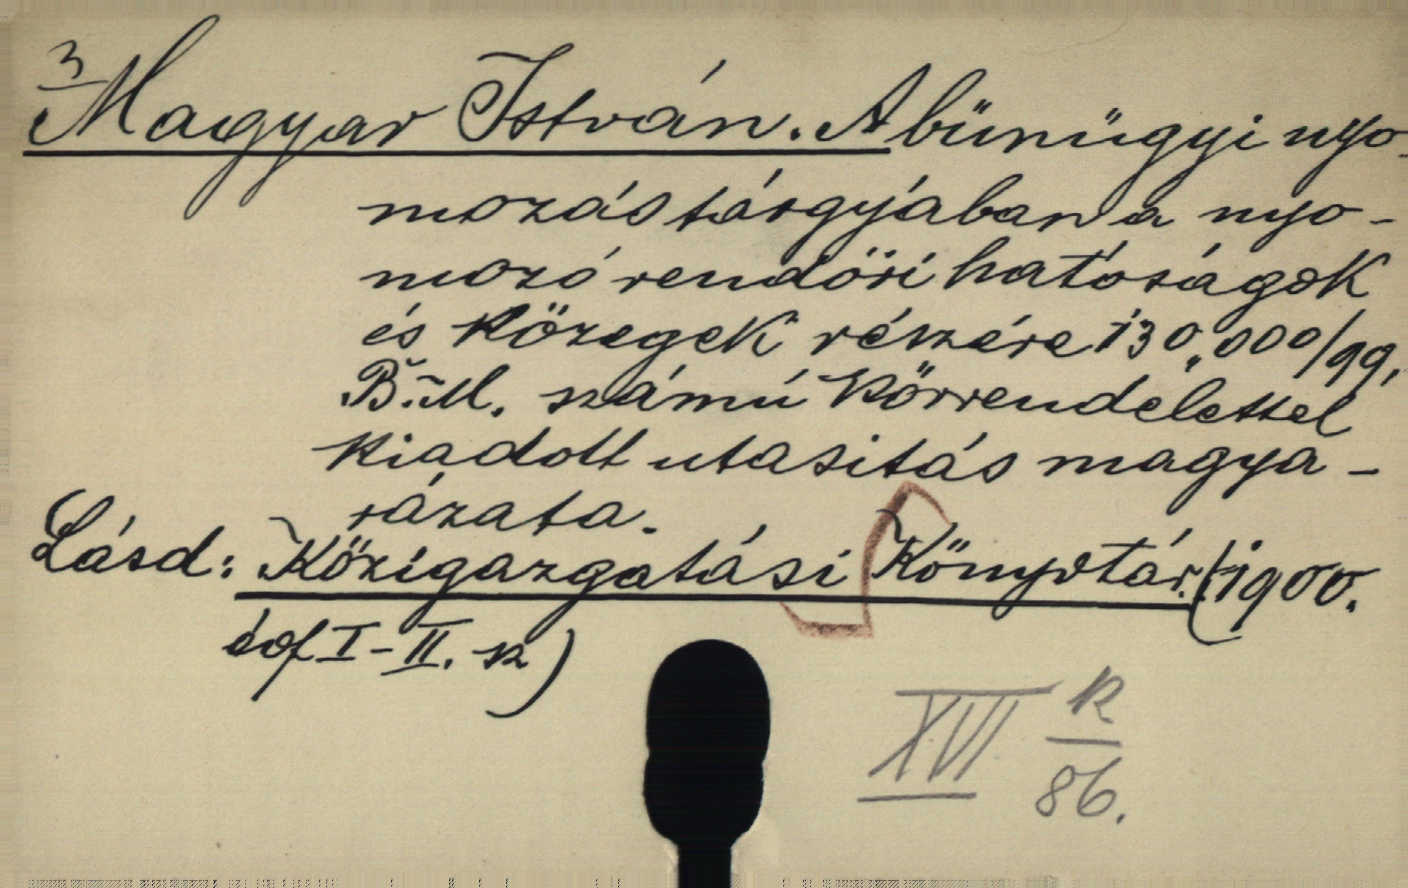 3
Magyar István. A bünügyi nyo-
mozás tárgyában a nyo-
mozó rendőri hatóságok
és közegek részére 130,000/99.
B.M. számú körrendelettel
kiadott utasitás magya-
rázata.
Lásd: Közigazgatási Könyvtár. (1900.
évf I-II. k)
XVI k
86.